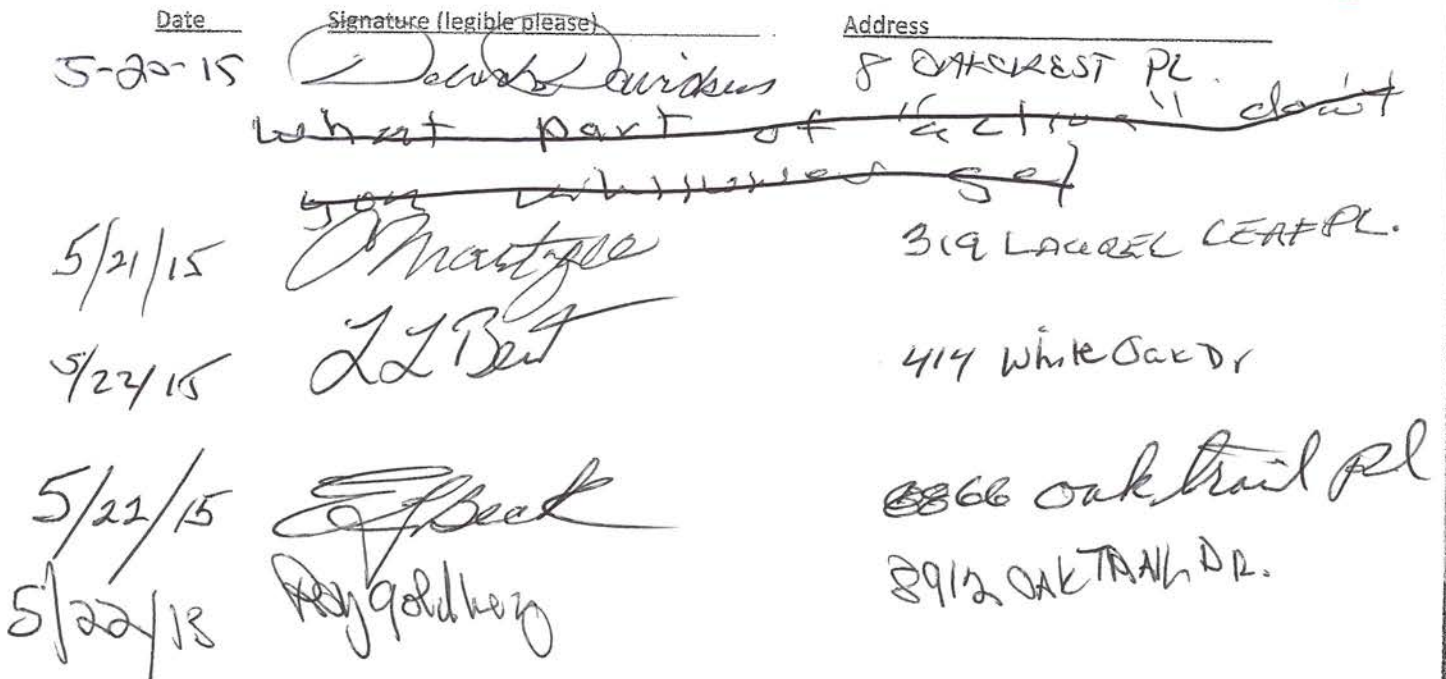 Date Signature (legible please) Address
5-20-15 Davidson 8 OAKCREST PL.
what part of "active" don't
you get
5/21/15 319 LAUREL LEAF PL.
5/22/15 L L Bent 414 White Oak Dr
5/22/15 Beak 8866 Oak trail Pl
5/22/15 Goldberg 8912 OAK TRAIL DR.